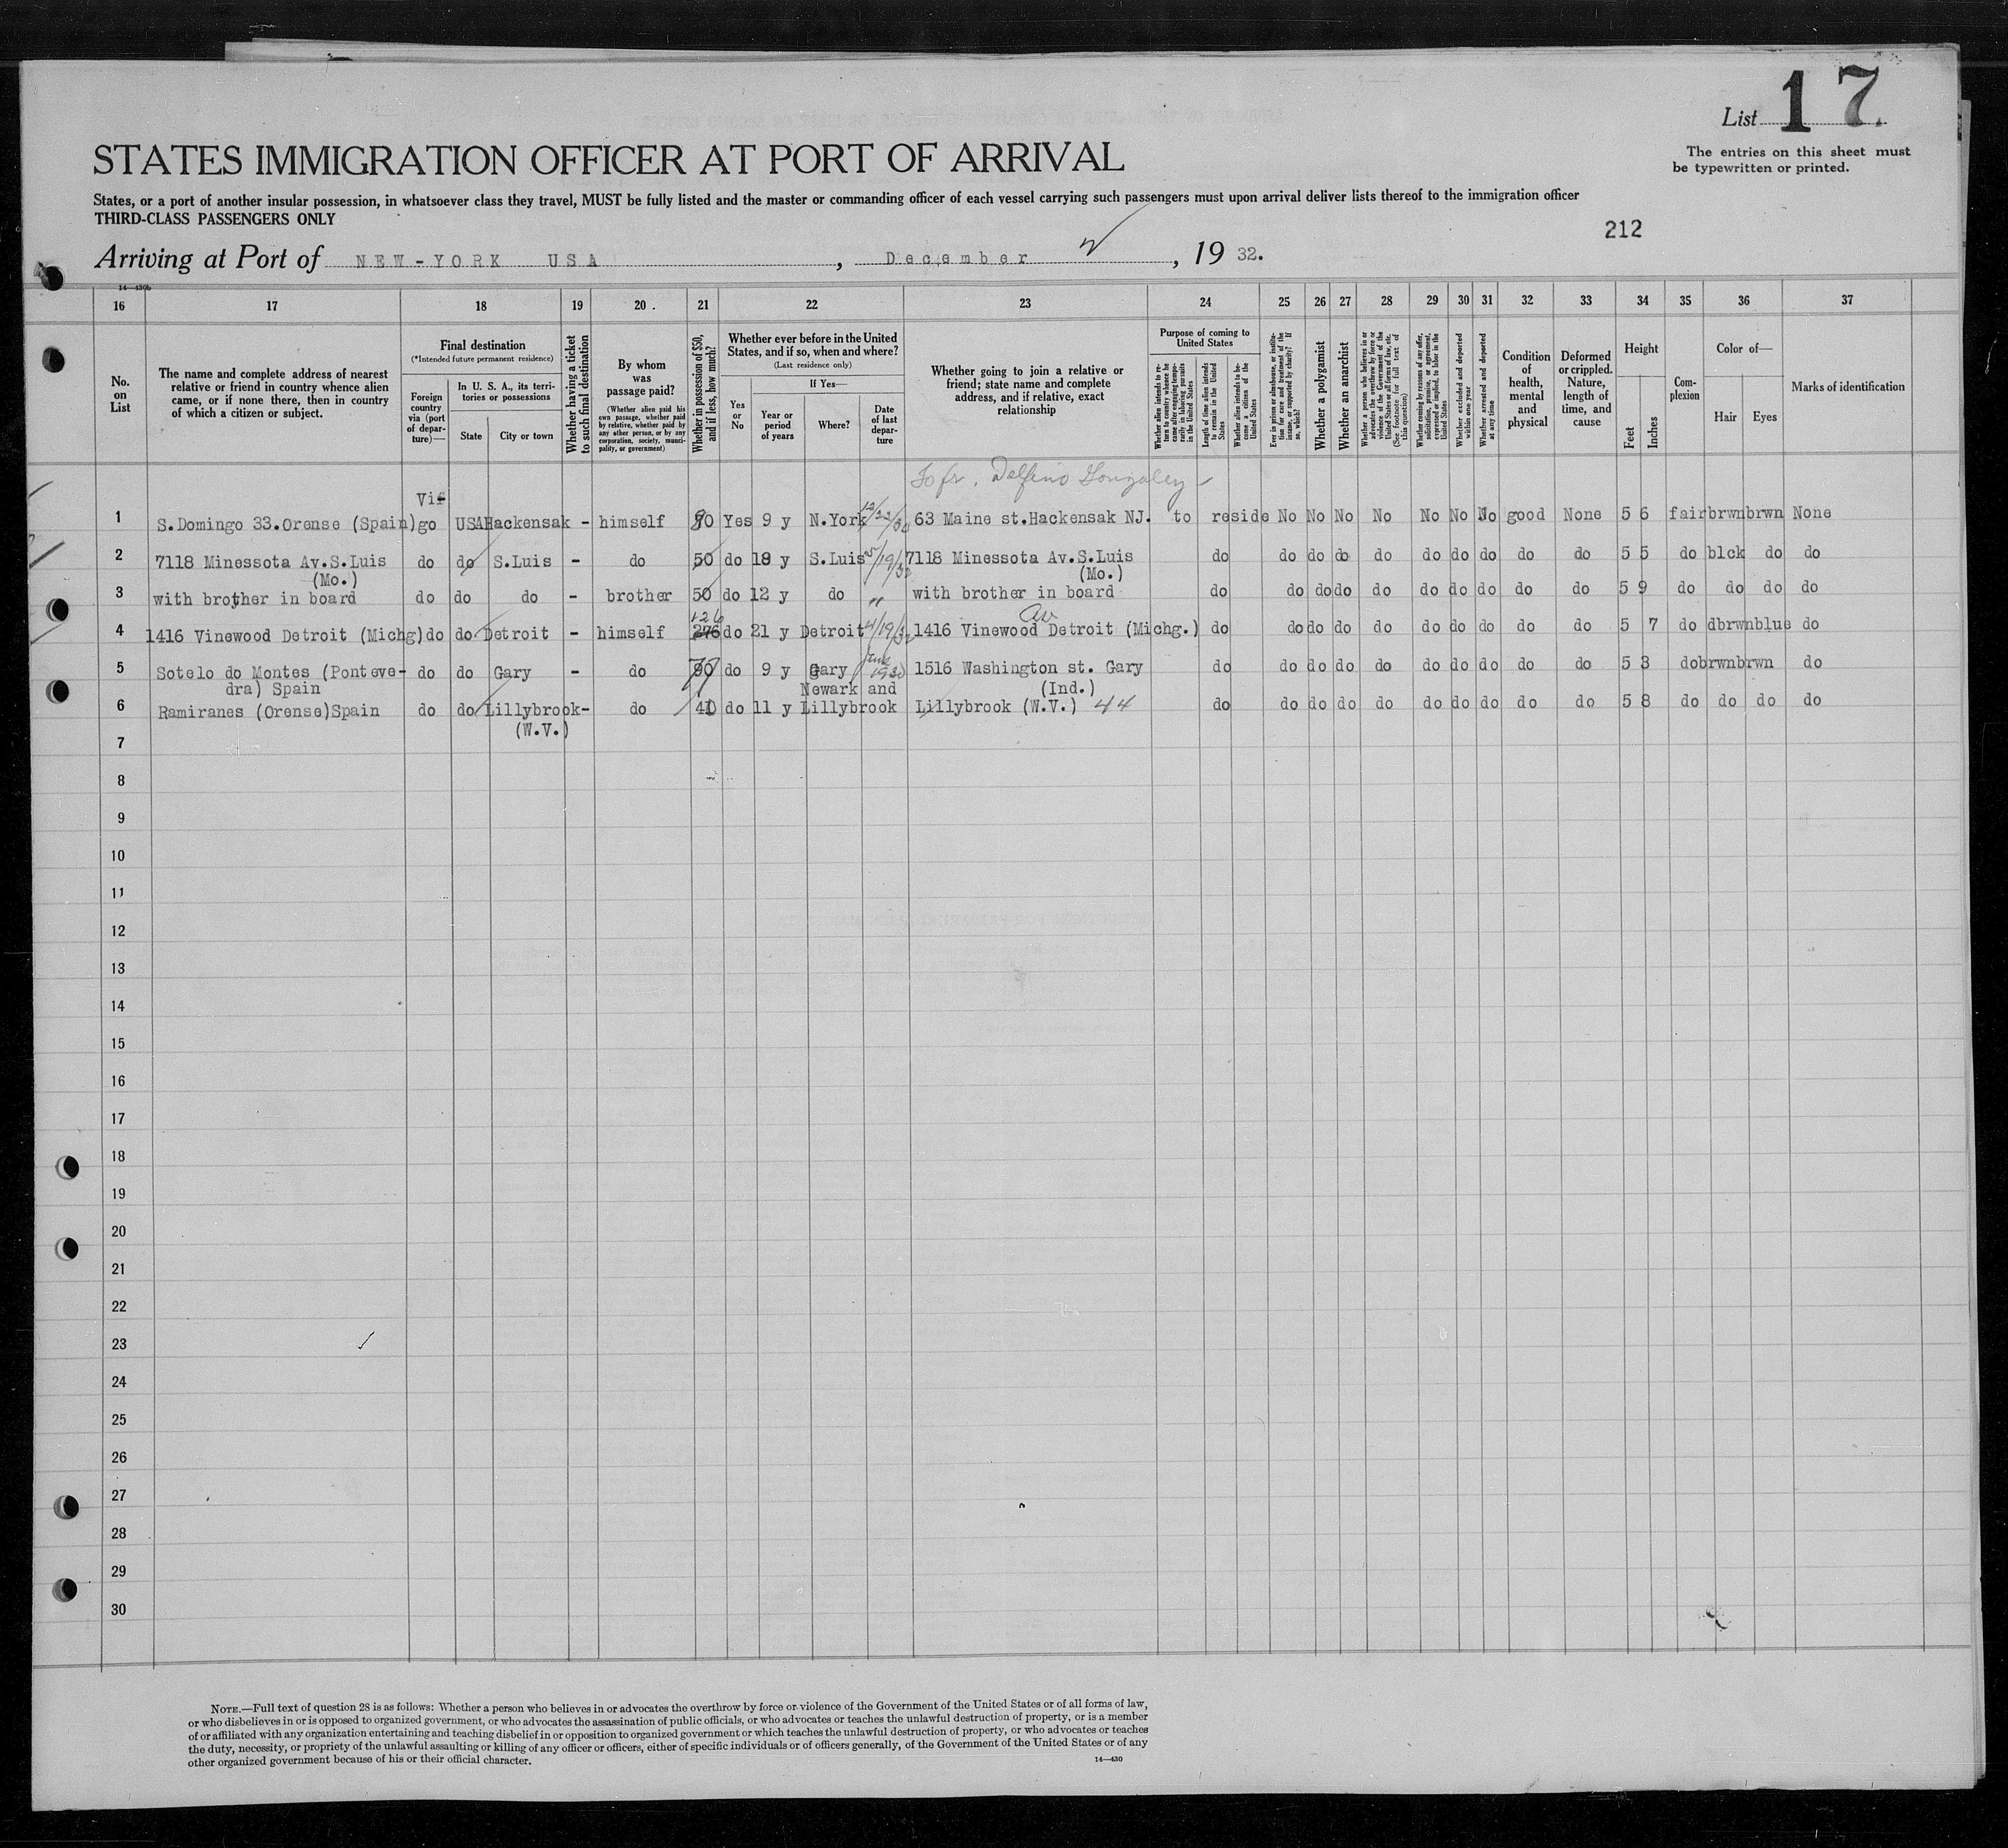 List 17.
The entries on this sheet must
be typewritten or printed.
STATES IMMIGRATION OFFICER AT PORT OF ARRIVAL
States, or a port of another insular possession, in whatsoever class they travel, MUST be fully listed and the master or commanding officer of each vessel carrying such passengers must upon arrival deliver lists thereof to the immigration officer
THIRD-CLASS PASSENGERS ONLY
212
Arriving at Port of NEW-YORK USA, December, 19 32.
14—430b
16 17 18 19 20. 21 22 23 24 25 26 27 28 29 30 31 32 33 34 35 36 37
No. on List
The name and complete address of nearest
relative or friend in country whence alien
came, or if none there, then in country
of which a citizen or subject.
Final destination
(*Intended future permanent residence)
Foreign country via (port of departure)—
In U. S. A., its territories or possessions
State
City or town
Whether having a ticket to such final destination
By whom was passage paid?
(Whether alien paid his own passage, whether paid by relative, whether paid by any other person, or by any corporation, society, municipality, or government)
Whether in possession of $50, and if less, how much?
Whether ever before in the United States, and if so, when and where?
(Last residence only)
Yes or No
If Yes—
Year or period of years
Where?
Date of last departure
Whether going to join a relative or
friend; state name and complete
address, and if relative, exact
relationship
Purpose of coming to United States
Whether alien intends to return to country whence he came after engaging temporarily in laboring pursuits in the United States
Length of time alien intends to remain in the United States
Whether alien intends to become a citizen of the United States
Ever in prison or almshouse, or institution for care and treatment of the insane, or supported by charity? If so, which?
Whether a polygamist
Whether an anarchist
Whether a person who believes in or advocates the overthrow by force or violence of the Government of the United States or all forms of law, etc. (See footnote for full text of this question)
Whether coming by reasons of any offer, solicitation, promise, or agreement, expressed or implied, to labor in the United States
Whether excluded and deported within one year
Whether arrested and deported at any time
Condition of health, mental and physical
Deformed or crippled. Nature, length of time, and cause
Height
Feet
Inches
Complexion
Color of—
Hair
Eyes
Marks of identification
To fr. Delfino Gonzalez
Vi
1 S.Domingo 33.Orense (Spain) go USA Hackensak - himself 90 Yes 9 y N.York 12/22/30 63 Maine st.Hackensak NJ. to reside No No No No No No No good None 5 6 fair brwn brwn None
2 7118 Minessota Av.S.Luis do do S.Luis - do 50 do 18 y S.Luis 5/19/32 7118 Minessota Av.S.Luis do do do do do do do do do do 5 5 do blck do do
(Mo.) (Mo.)
3 with brother in board do do do - brother 50 do 12 y do " with brother in board do do do do do do do do do do 5 9 do do do do
126 Av
4 1416 Vinewood Detroit (Michg) do do Detroit - himself 276 do 21 y Detroit 4/19/32 1416 Vinewood Detroit (Michg.) do do do do do do do do do do 5 7 do dbrwn blue do
5 Sotelo do Montes (Ponteve- do do Gary - do 90 do 9 y Gary June 1930 1516 Washington st. Gary do do do do do do do do do do 5 3 do brwn brwn do
dra) Spain Newark and (Ind.)
6 Ramiranes (Orense)Spain do do Lillybrook- do 40 do 11 y Lillybrook Lillybrook (W.V.) 44 do do do do do do do do do do 5 8 do do do do
(W.V.)
7
8
9
10
11
12
13
14
15
16
17
18
19
20
21
22
23
24
25
26
27
28
29
30
NOTE.—Full text of question 28 is as follows: Whether a person who believes in or advocates the overthrow by force or violence of the Government of the United States or of all forms of law,
or who disbelieves in or is opposed to organized government, or who advocates the assassination of public officials, or who advocates or teaches the unlawful destruction of property, or is a member
of or affiliated with any organization entertaining and teaching disbelief in or opposition to organized government or which teaches the unlawful destruction of property, or who advocates or teaches
the duty, necessity, or propriety of the unlawful assaulting or killing of any officer or officers, either of specific individuals or of officers generally, of the Government of the United States or of any
other organized government because of his or their official character.
14—430